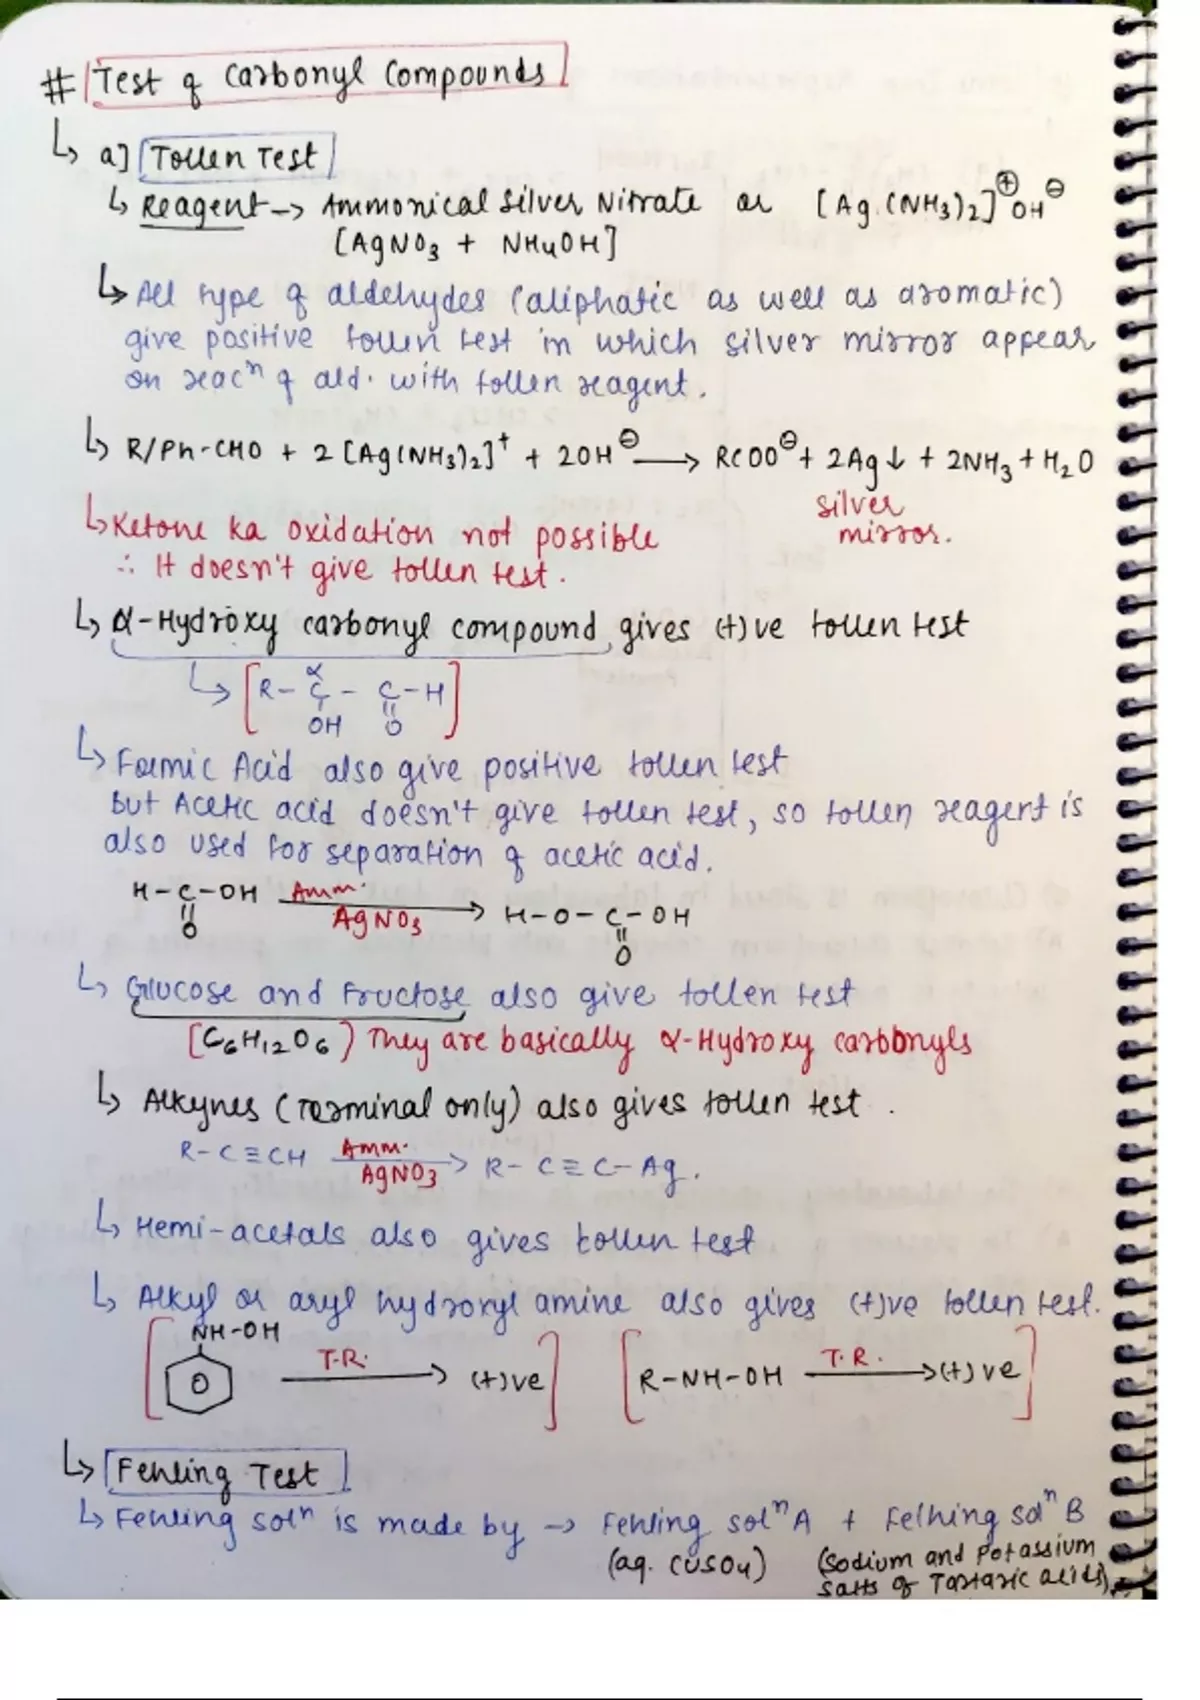 # Test of Carbonyl Compounds
↳ a] Tollen Test
↳ Reagent → Ammonical Silver Nitrate or [Ag(NH₃)₂]⊕ OH⊖
[AgNO₃ + NH₄OH]
↳ All type of aldehydes (aliphatic as well as aromatic)
give positive tollen test in which silver mirror appear
on reacⁿ of ald. with tollen reagent.
↳ R/Ph-CHO + 2[Ag(NH₃)₂]⁺ + 2OH⊖ → RCOO⊖ + 2Ag↓ + 2NH₃ + H₂O
silver
mirror.
↳ Ketone ka oxidation not possible
∴ It doesn't give tollen test.
↳ α-Hydroxy carbonyl compound gives (+)ve tollen test
↳ [R-C-C-H]
α
OH O
↳ Formic Acid also give positive tollen test
but Acetic acid doesn't give tollen test, so tollen reagent is
also used for separation of acetic acid.
H-C-OH Amm. AgNO₃ → H-O-C-OH
O O
↳ Glucose and Fructose also give tollen test
[C₆H₁₂O₆) They are basically α-Hydroxy carbonyls
↳ Alkynes (Terminal only) also gives tollen test.
R-C≡CH Amm. AgNO₃ → R-C≡C-Ag.
↳ Hemi-acetals also gives tollen test
↳ Alkyl or aryl hydroxyl amine also gives (+)ve tollen test.
[NH-OH T.R. → (+)ve] [R-NH-OH T.R. → (+)ve]
↳ Fehling Test
↳ Fehling solⁿ is made by → Fehling solⁿ A + Felhing solⁿ B
(aq. CuSO₄) (Sodium and Potassium
salts of Tartaric acids)